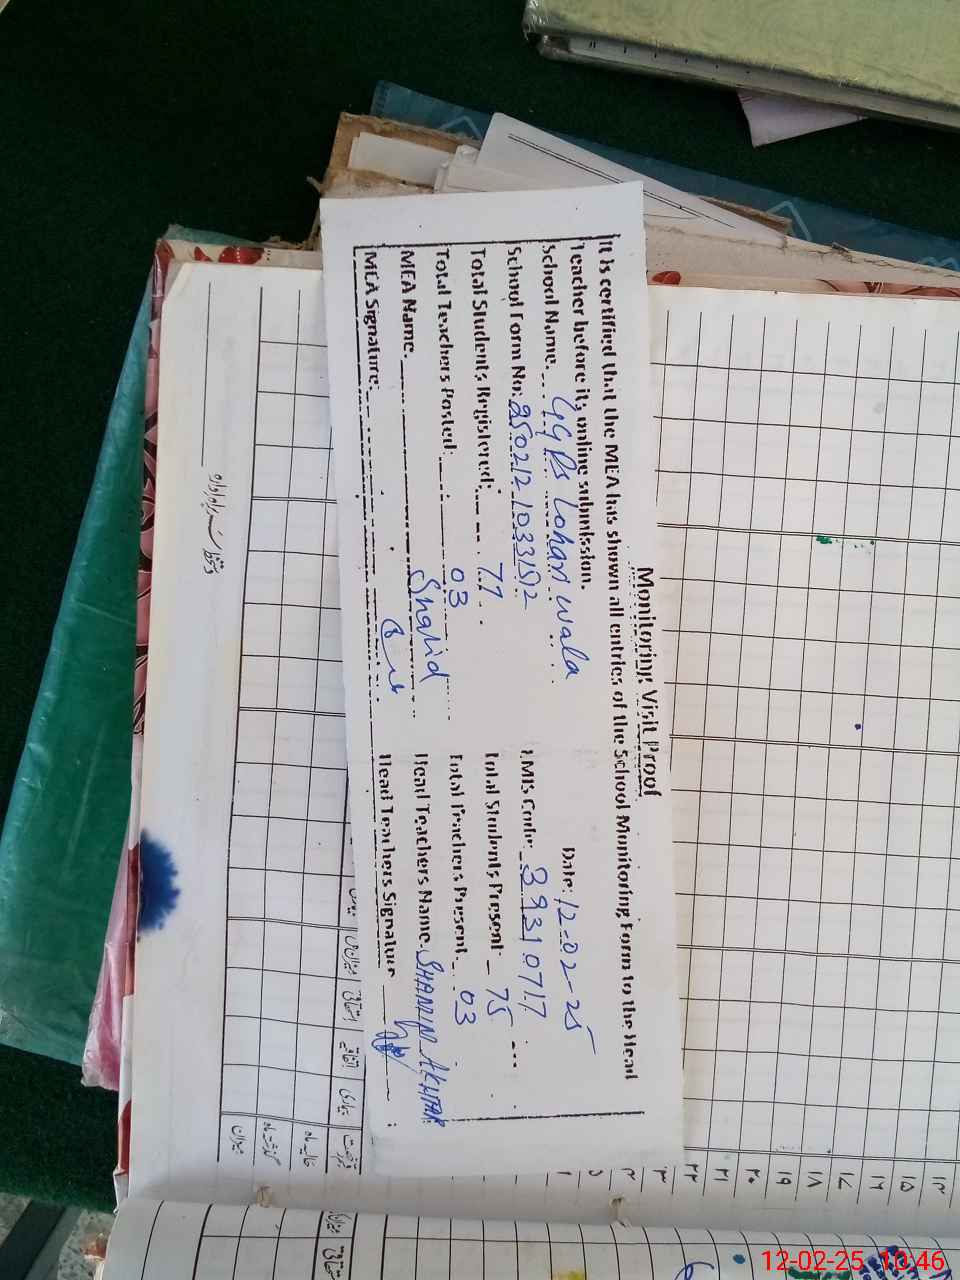 Monitoring Visit Proof
It is certified that the MEA has shown all entries of the School Monitoring Form to the Head
Teacher before its online submission.
Date: 12-02-25
School Name. GGPS Lohari wala
School Form No: 250212103315
EMIS Code: 39310717
Total Students Registered: 77
Total Students Present - 75
Total Teachers Posted: 03
Total Teachers Present. 03
MEA Name. Shahid
Head Teachers Name. SHAMIM AKHTAR
MEA Signature:
Head Teachers Signature
دستخط
میزان
گذشتہ ماہ
حالیہ ماہ
۱۳
۱۵
۱۶
۱۷
۱۸
۱۹
۲۰
۲۱
۲۲
۲۳
12-02-25 10:46